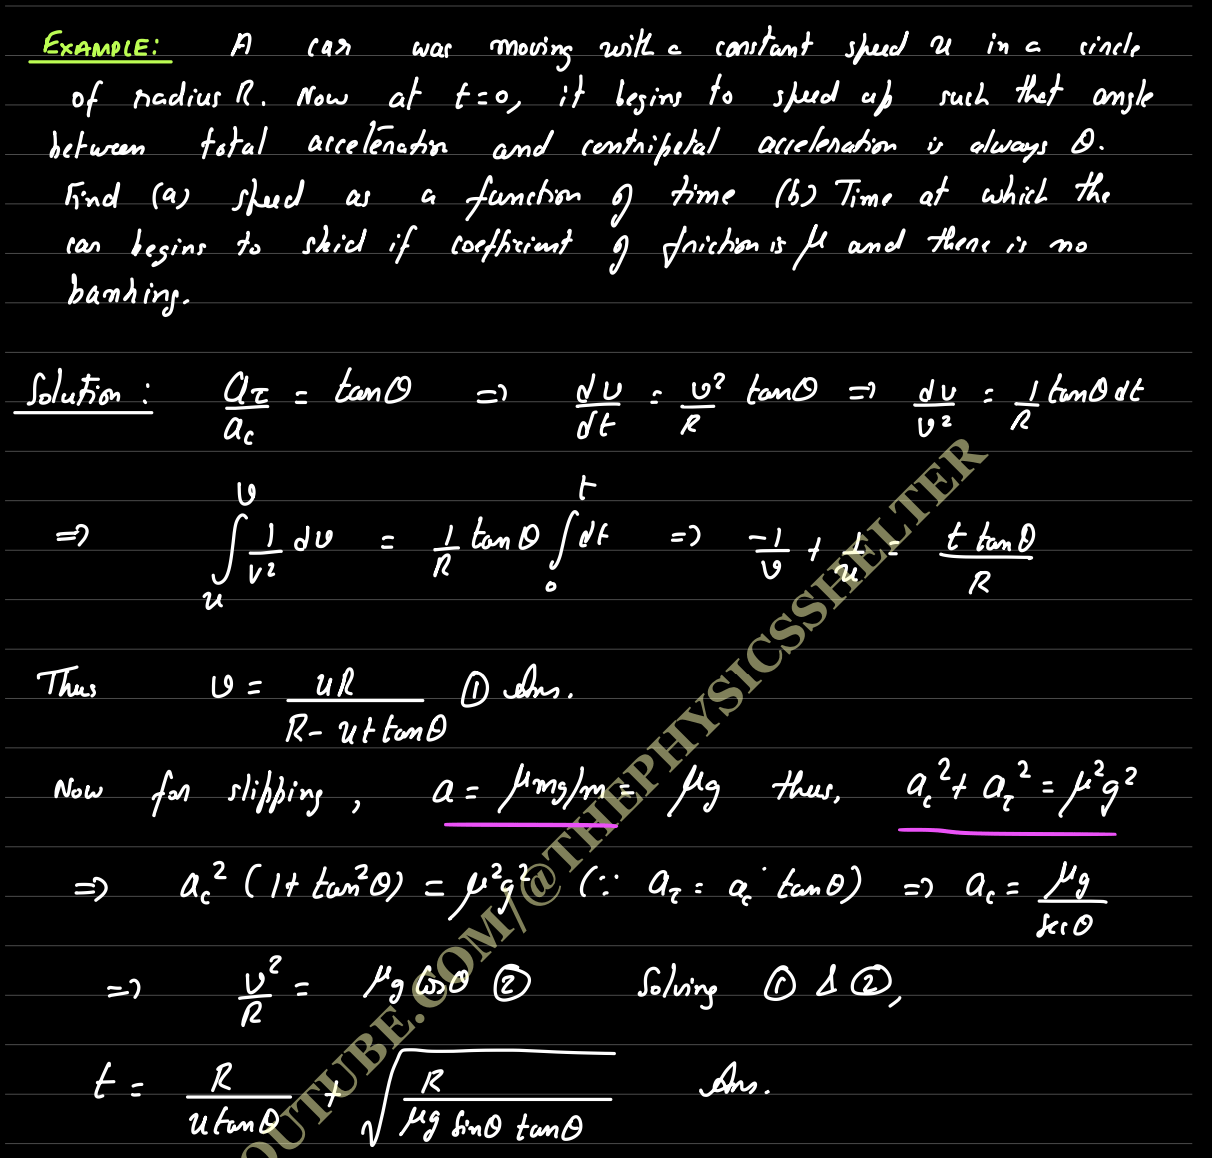 EXAMPLE: A car was moving with a constant speed u in a circle
of radius R. Now at t=0, it begins to speed up such that angle
between total acceleration and centripetal acceleration is always θ.
Find (a) speed as a function of time (b) Time at which the
car begins to skid if coefficient of friction is μ and there is no
banking.
Solution: a_τ/a_c = tanθ ⇒ dv/dt = v²/R tanθ ⇒ dv/v² = 1/R tanθ dt
⇒ ∫_u^v 1/v² dv = 1/R tanθ ∫_0^t dt ⇒ -1/v + 1/u = t tanθ/R
Thus v = uR/(R - ut tanθ) ① Ans.
Now for slipping, a = μmg/m = μg thus, a_c² + a_τ² = μ²g²
⇒ a_c² (1+ tan²θ) = μ²g² (∵ a_τ = a_c tanθ) ⇒ a_c = μg/secθ
⇒ v²/R = μg cosθ ② Solving ① & ②,
t = R/(u tanθ) + √(R/(μg sinθ tanθ)) Ans.
OUTUBE.COM/@THEPHYSICSSHELTER